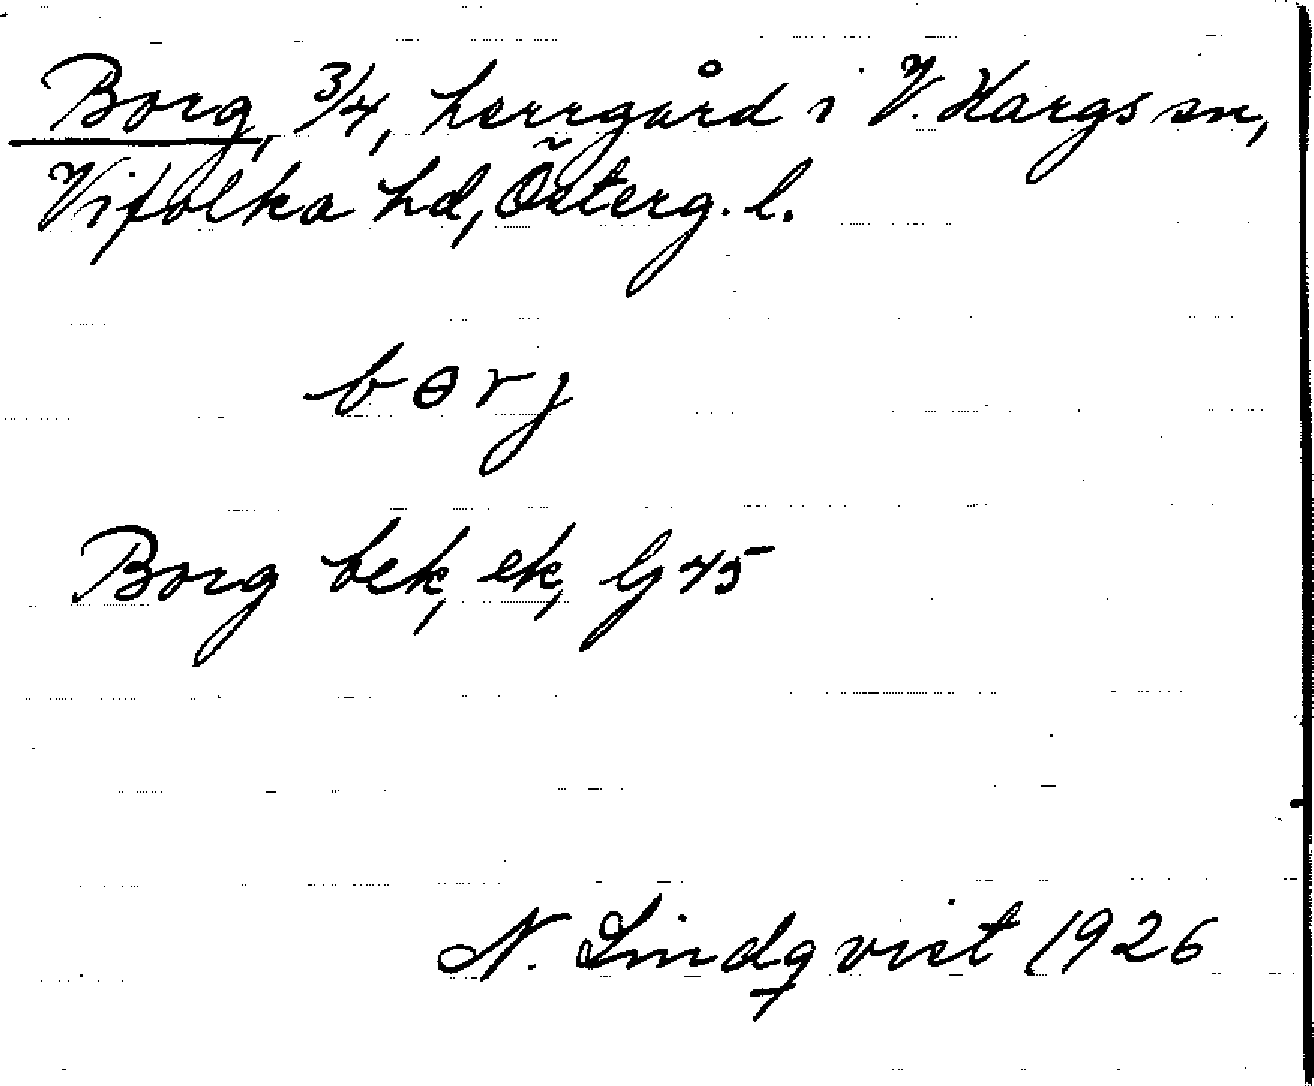 Borg, 3/4, herrgård i V. Hargs sn,
Vifolka hd, Österg. l.
bɵrj
Borg bek, ek, lg 45
N. Lindqvist 1926